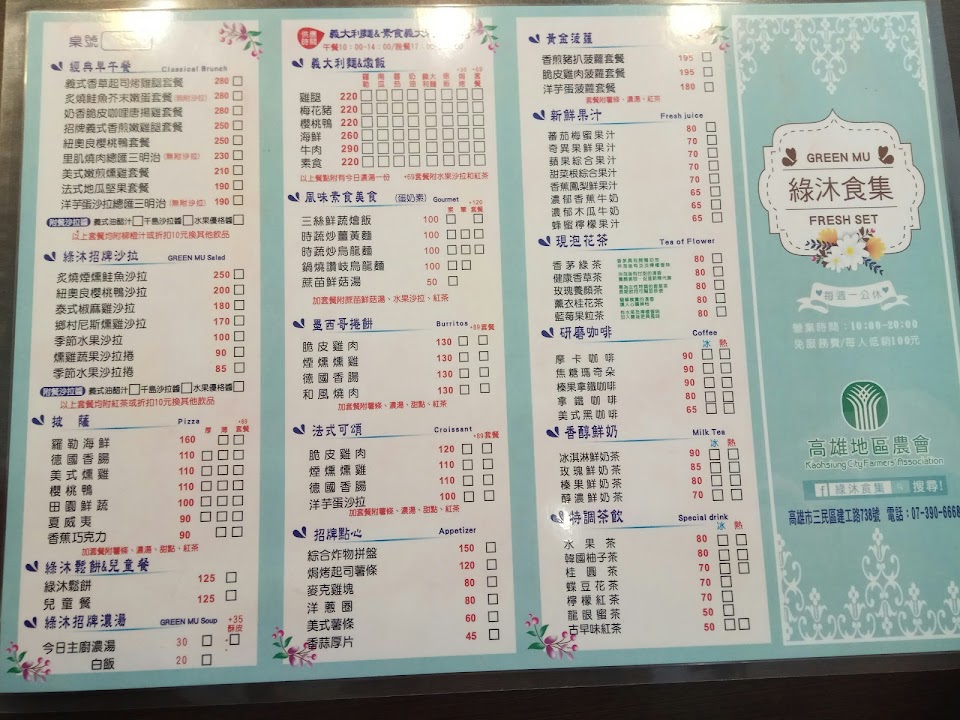 桌號
經典早午餐 Classical Brunch
義式香草起司烤雞腿套餐 280
炙燒鮭魚芥末嫩蛋套餐(無附沙拉) 280
奶香脆皮咖哩唐揚雞套餐 280
招牌義式香煎嫩雞腿套餐 250
紐奧良櫻桃鴨套餐 250
里肌燒肉總匯三明治(無附沙拉) 230
美式嫩煎燻雞套餐 210
法式地瓜堅果套餐 190
洋芋蛋沙拉總匯三明治(無附沙拉) 190
附餐沙拉醬 義式油醋汁 千島沙拉醬 水果優格醬
以上套餐均附柳橙汁或折扣10元換其他飲品
綠沐招牌沙拉 GREEN MU Salad
炙燒煙燻鮭魚沙拉 250
紐奧良櫻桃鴨沙拉 200
泰式椒麻雞沙拉 180
鄉村尼斯燻雞沙拉 170
季節水果沙拉 100
燻雞蔬果沙拉捲 90
季節水果沙拉捲 85
附餐沙拉醬 義式油醋汁 千島沙拉醬 水果優格醬
以上套餐均附紅茶或折扣10元換其他飲品
披薩 Pizza
厚 薄 +69 套餐
羅勒海鮮 160
德國香腸 110
美式燻雞 110
櫻桃鴨 110
田園鮮蔬 100
夏威夷 90
香蕉巧克力 90
加套餐附薯條、濃湯、甜點、紅茶
綠沐鬆餅&兒童餐
綠沐鬆餅 125
兒童餐 125
綠沐招牌濃湯 GREEN MU Soup +35 酥皮
今日主廚濃湯 30
白飯 20
供應時間 義大利麵&素食義大利麵
午餐10:00-14:00/晚餐17:
義大利麵&燉飯
雞腿 220
梅花豬 220
櫻桃鴨 220
海鮮 260
牛肉 290
素食 220
以上餐點附有今日濃湯一份 +69套餐附水果沙拉和紅茶
風味素食美食 (蛋奶素) Gourmet +120
三絲鮮蔬燴飯 100
時蔬炒薑黃麵 100
時蔬炒烏龍麵 100
鍋燒讚岐烏龍麵 100
蔗苗鮮菇湯 50
加套餐附蔗苗鮮菇湯、水果沙拉、紅茶
墨西哥捲餅 Burritos +89 套餐
脆皮雞肉 130
煙燻燻雞 130
德國香腸 130
和風燒肉 130
加套餐附薯條、濃湯、甜點、紅茶
法式可頌 Croissant +89 套餐
脆皮雞肉 120
煙燻燻雞 110
德國香腸 110
洋芋蛋沙拉 100
加套餐附薯條、濃湯、甜點、紅茶
招牌點心 Appetizer
綜合炸物拼盤 150
焗烤起司薯條 120
麥克雞塊 80
洋蔥圈 80
美式薯條 60
香蒜厚片 45
黃金菠蘿
香煎豬扒菠蘿套餐 195
脆皮雞肉菠蘿套餐 195
洋芋蛋菠蘿套餐 180
套餐附薯條、濃湯、紅茶
新鮮果汁 Fresh juice
蕃茄梅蜜果汁 80
奇異果鮮果汁 70
蘋果綜合果汁 70
甜菜根綜合果汁 70
香蕉鳳梨鮮果汁 70
濃郁香蕉牛奶 65
濃郁木瓜牛奶 65
蜂蜜檸檬果汁 65
現泡花茶 Tea of Flower
香茅綠茶 80
健康香草茶 80
玫瑰養顏茶 80
薰衣桂花茶 80
藍莓果粒茶 80
研磨咖啡 Coffee
冰 熱
摩卡咖啡 90
焦糖瑪奇朵 90
榛果拿鐵咖啡 90
拿鐵咖啡 80
美式黑咖啡 65
香醇鮮奶 Milk Tea
冰 熱
冰淇淋鮮奶茶 90
玫瑰鮮奶茶 85
榛果鮮奶茶 80
醇濃鮮奶茶 70
特調茶飲 Special drink
冰 熱
水果茶 80
韓國柚子茶 80
桂圓茶 70
蝶豆花茶 70
檸檬紅茶 70
龍眼蜜茶 50
古早味紅茶 50
GREEN MU
綠沐食集
FRESH SET
每週一公休
營業時間:10:00-20:00
免服務費/每人低銷100元
高雄地區農會
Kaohsiung City Farmers' Association
f 綠沐食集 搜尋!
高雄市三民區建工路738號 電話:07-390-6668